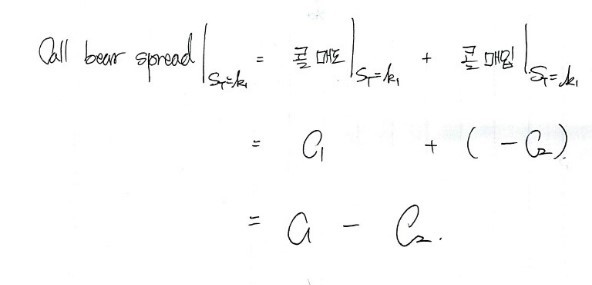 Call bear spread|S_T=k₁ = 콜매도|S_T=k₁ + 콜매입|S_T=k₁
= C₁ + (-C₂).
= C₁ - C₂.